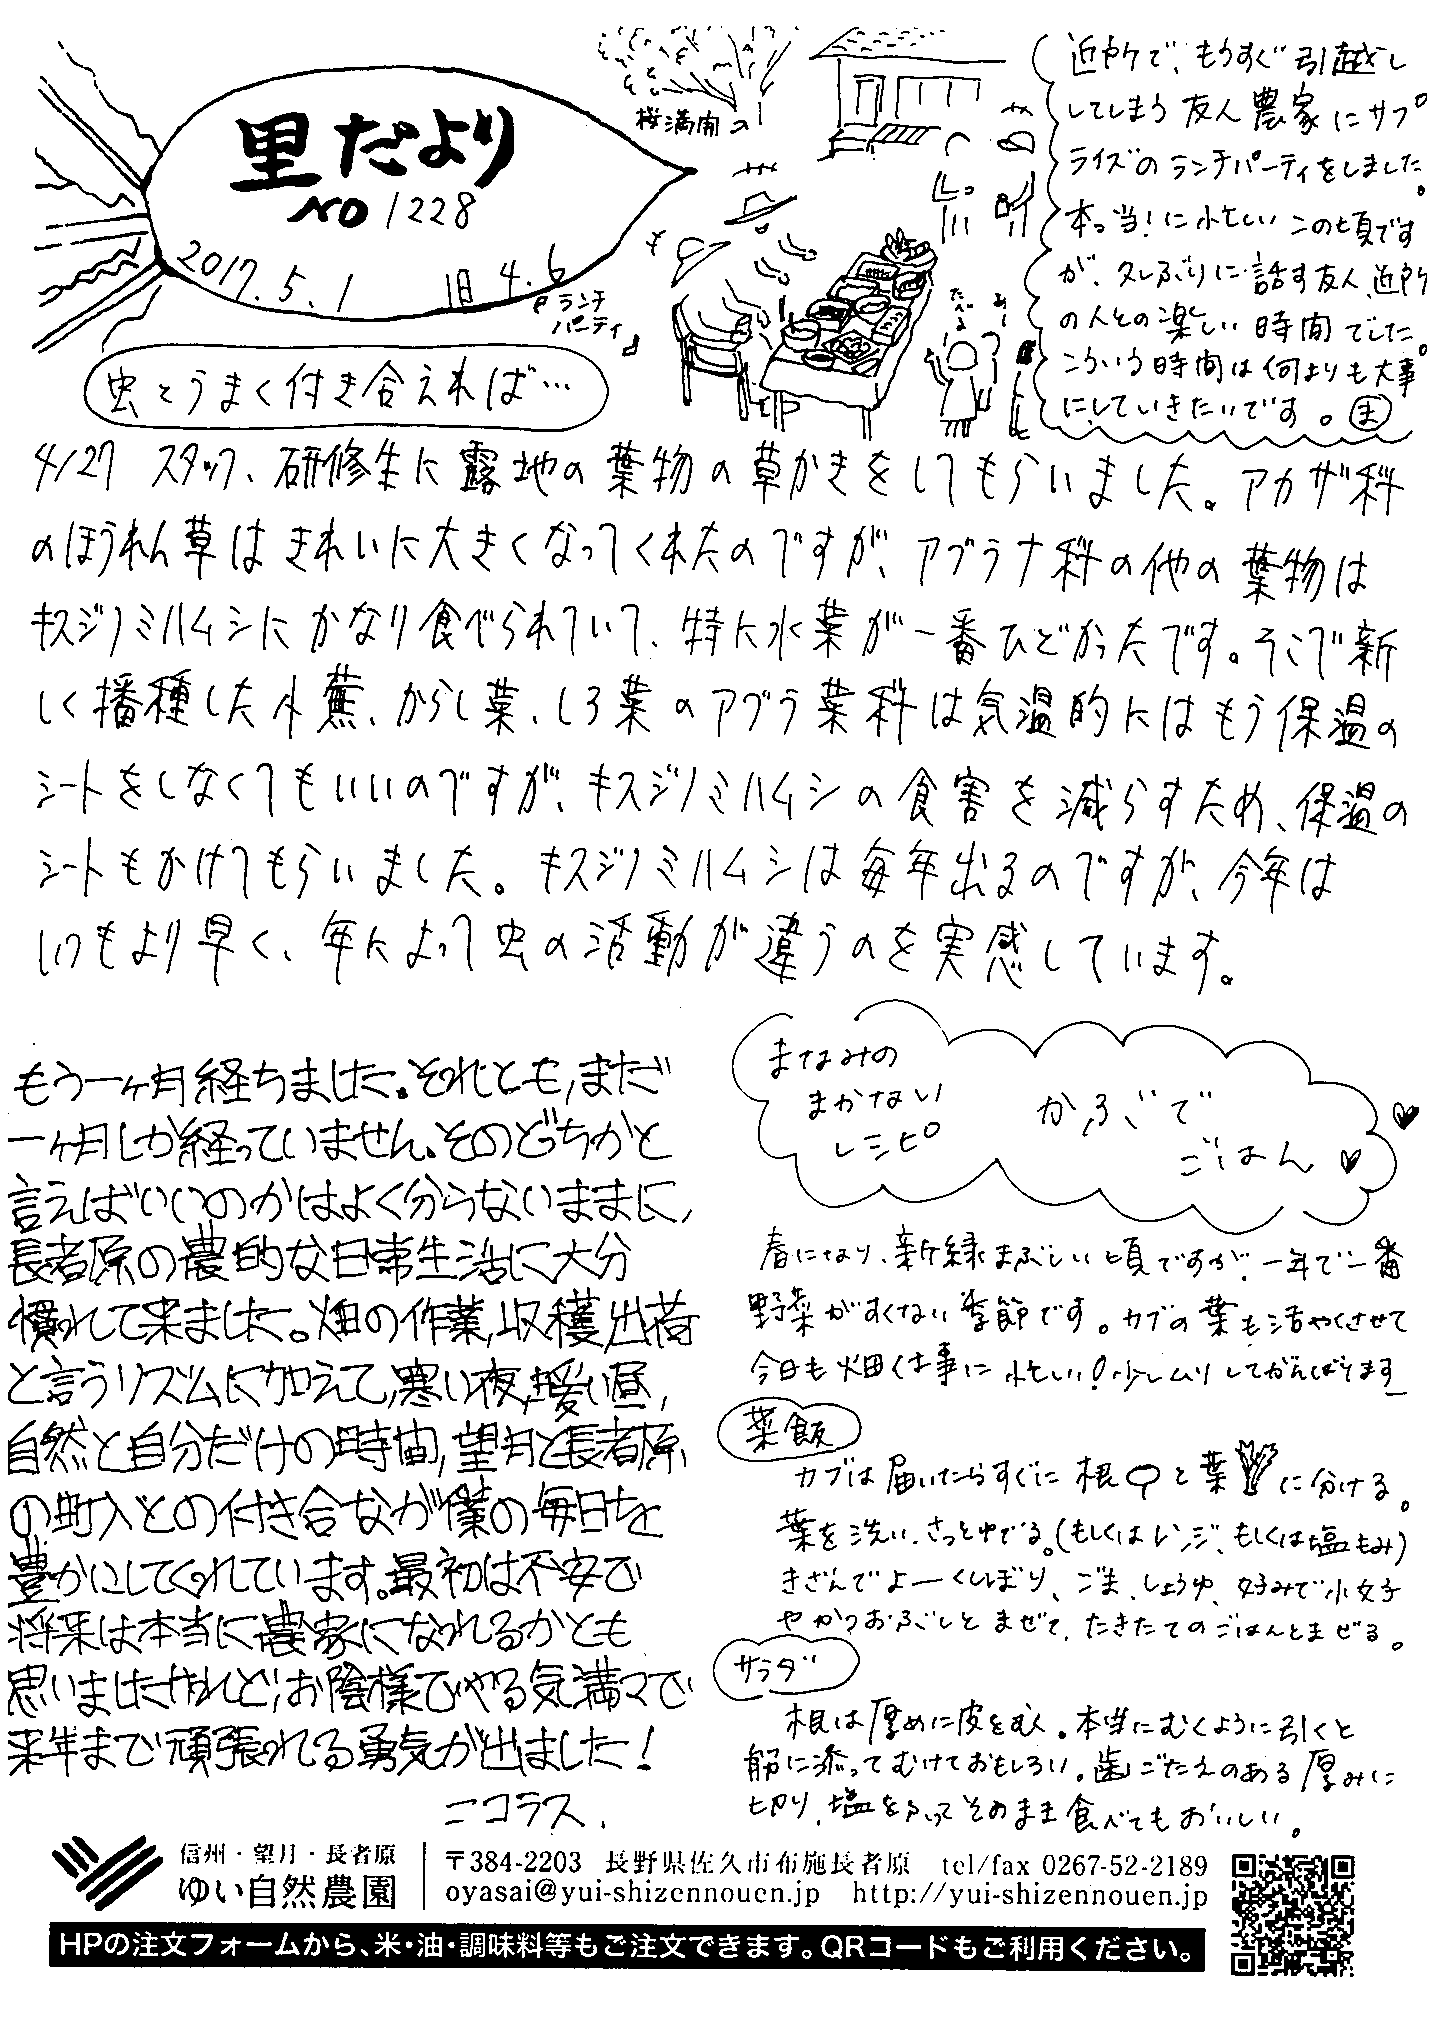 里だより
NO 1228
2017.5.1 旧4.6
桜満開の
ランチ
パーティ
たべる
近所で、もうすぐ引越し
してしまう友人農家にサプ
ライズのランチパーティをしました。
本っ当!に忙しいこの頃です
が、久しぶりに話す友人、近所
の人との楽しい時間でした。
こういう時間は何よりも大事
にしていきたいです。ま
虫とうまく付き合えれば…
4/27 スタッフ、研修生に露地の葉物の草かきをしてもらいました。アカザ科
のほうれん草はきれいに大きくなってくれたのですが、アブラナ科の他の葉物は
キスジノミハムシにかなり食べられていて、特に水菜が一番ひどかったです。そこで新
しく播種した小蕪、からし菜、しろ菜のアブラ菜科は気温的にはもう保温の
シートをしなくてもいいのですが、キスジノミハムシの食害を減らすため、保温の
シートもかけてもらいました。キスジノミハムシは毎年出るのですが、今年は
いつもより早く、年によって虫の活動が違うのを実感しています。
もう一ヶ月経ちました。それとも、まだ
一ヶ月しか経っていません。そのどっちかと
言えばいいのかはよく分らないままに、
長者原の農的な日常生活に大分
慣れて来ました。畑の作業,収穫,出荷
と言うリズムに加えて,寒い夜,暖い昼,
自然と自分だけの時間,望月と長者原
の町人との付き合なが僕の毎日を
豊かにしてくれています。最初は不安で
将来は本当に農家になれるかとも
思いましたけれど,お陰様でやる気満々で
来年まで頑張れる勇気が出ました!
ニコラス.
まなみの
まかない
レシピ
かぶで
ごはん
春になり、新緑まぶしい頃ですが、一年で一番
野菜がすくない季節です。カブの葉も活やくさせて
今日も畑仕事に忙しい!少しムリしてがんばります
菜飯
カブは届いたらすぐに根と葉に分ける。
葉を洗い、さっとゆでる。(もしくはレンジ、もしくは塩もみ)
きざんでよーくしぼり、ごま、しょうゆ、好みで小女子
やかつおぶしとまぜて、たきたてのごはんとまぜる。
サラダ
根は厚めに皮をむく。本当にむくように引くと
筋に添ってむけておもしろい。歯ごたえのある厚みに
切り、塩をふってそのまま食べてもおいしい。
信州・望月・長者原
ゆい自然農園
〒384-2203 長野県佐久市布施長者原 tel/fax 0267-52-2189
oyasai@yui-shizennouen.jp http://yui-shizennouen.jp
HPの注文フォームから、米・油・調味料等もご注文できます。QRコードもご利用ください。